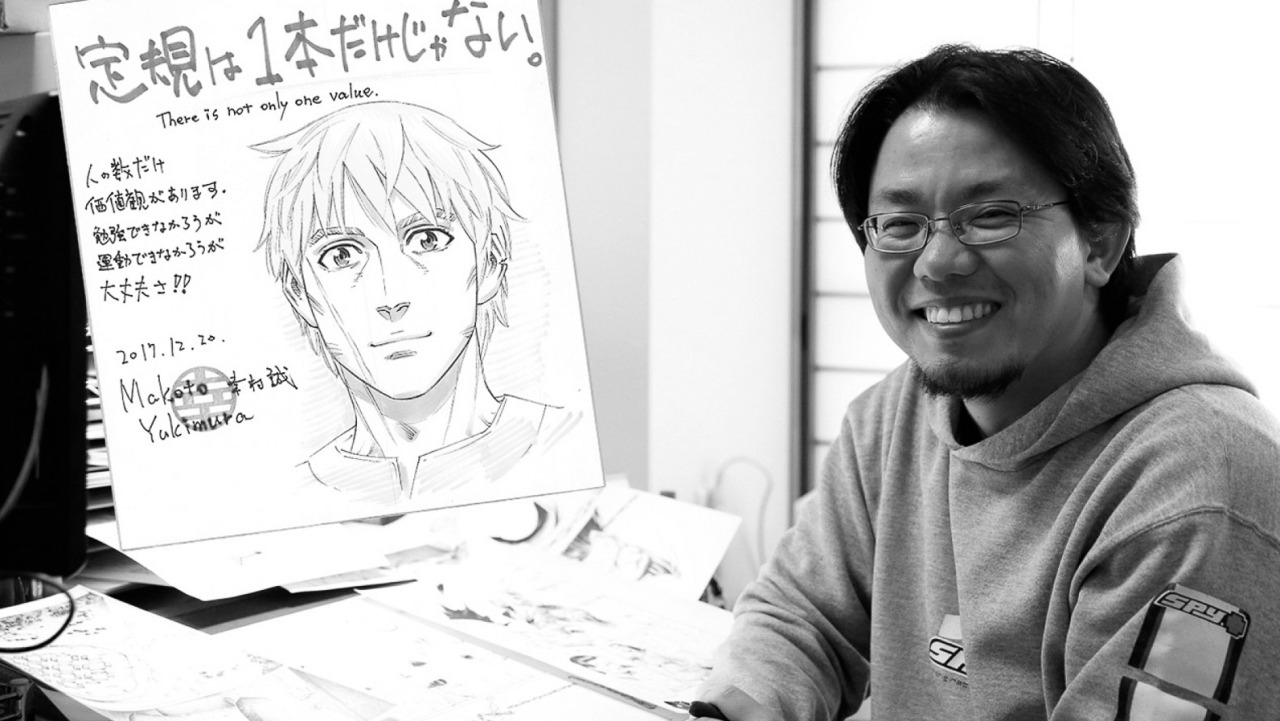 定規は1本だけじゃない。
There is not only one value.
人の数だけ
価値観があります。
勉強できなかろうが
運動できなかろうが
大丈夫さ!!
2017.12.20.
Makoto 幸村誠
Yukimura
SPY